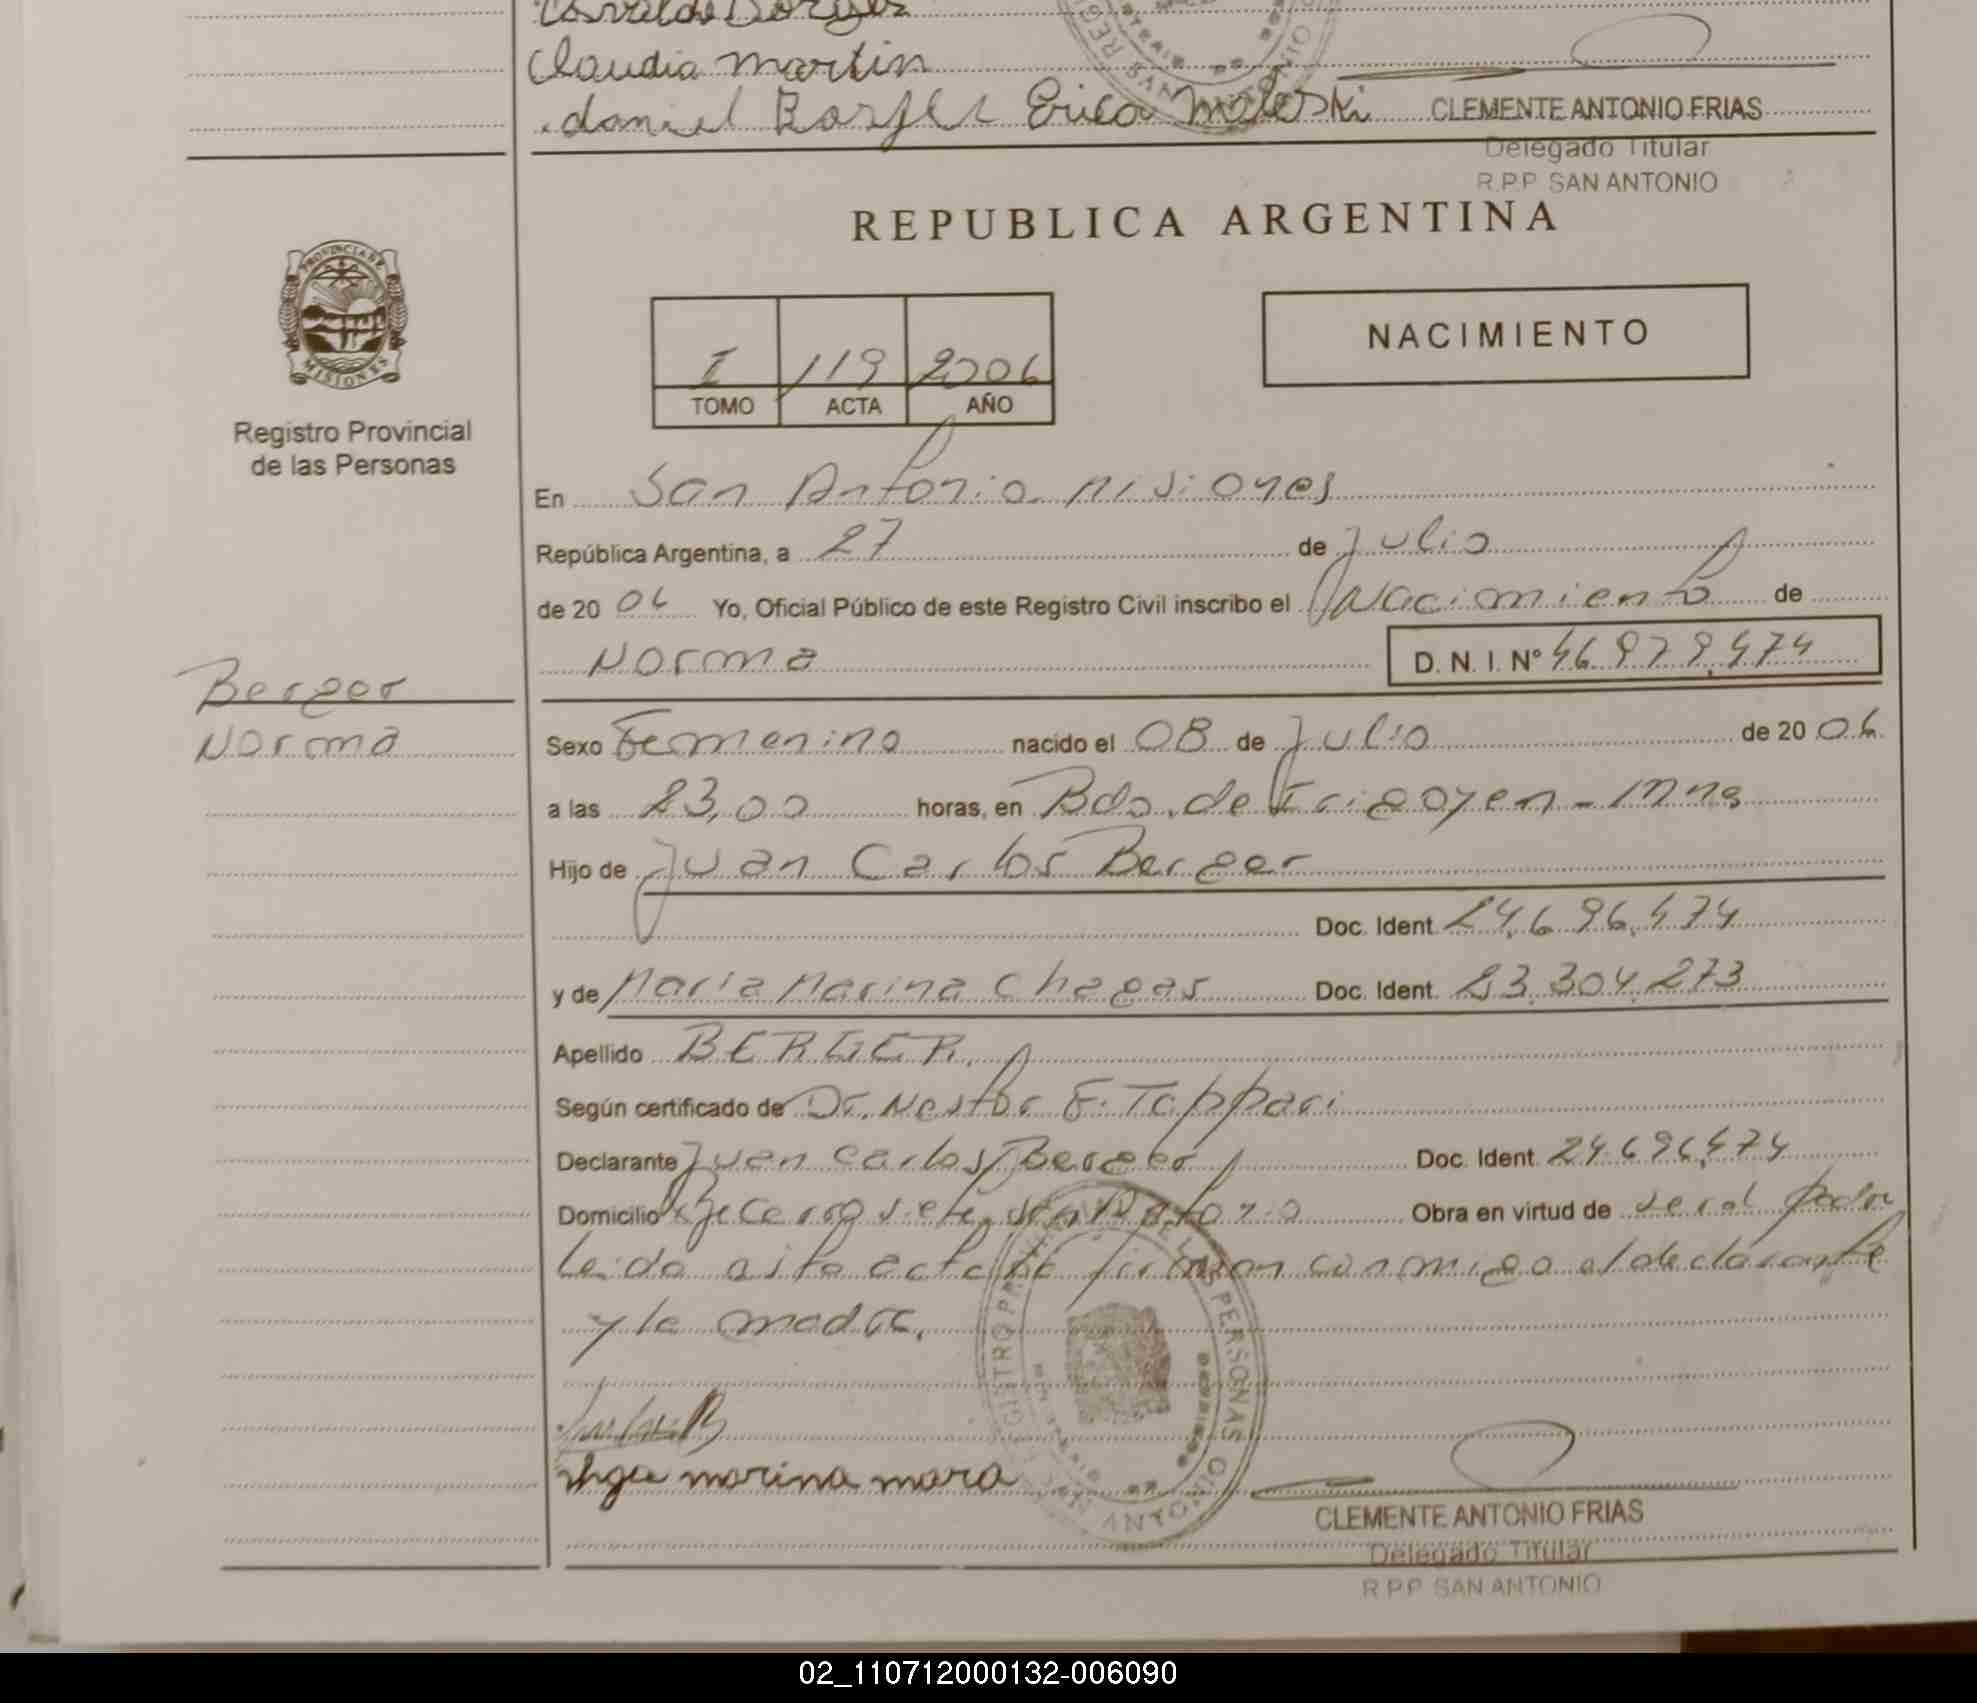 Claudia Martin
daniel Erica
CLEMENTE ANTONIO FRIAS
Delegado Titular
R.P.P. SAN ANTONIO
REPUBLICA ARGENTINA
PROVINCIA DE
MISIONES
Registro Provincial
de las Personas
I 119 2006
TOMO ACTA AÑO
NACIMIENTO
En San Antonio Misiones
República Argentina, a 27 de Julio
de 20 06 Yo, Oficial Público de este Registro Civil inscribo el Nacimiento de
Norma D. N. I. Nº 46.979.474
Berger
Norma
Sexo Femenino nacido el 08 de Julio de 20 06
a las 23,00 horas, en Bdo. de Irigoyen - Mnes
Hijo de Juan Carlos Berger
Doc. Ident. 24.696.474
y de Maria Marina Chagas Doc. Ident. 23.304.273
Apellido BERGER.
Según certificado de Dr. Nestor F. Tappari
Declarante Juan Carlos Berger Doc. Ident. 24.696.474
Domicilio San Antonio Obra en virtud de ser el padre
Leida esta acta la firman conmigo el declarante
y la madre.
marina mara
REGISTRO PROVINCIAL DE LAS PERSONAS
SAN ANTONIO
CLEMENTE ANTONIO FRIAS
Delegado Titular
R.P.P. SAN ANTONIO
02_110712000132-006090